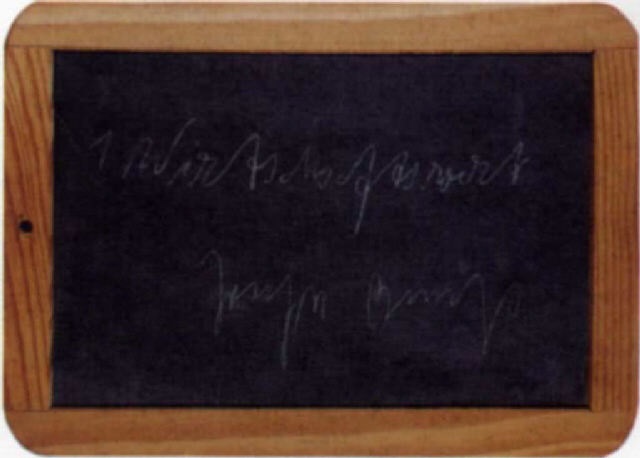 1 Wirtschaftswert
Joseph Beuys